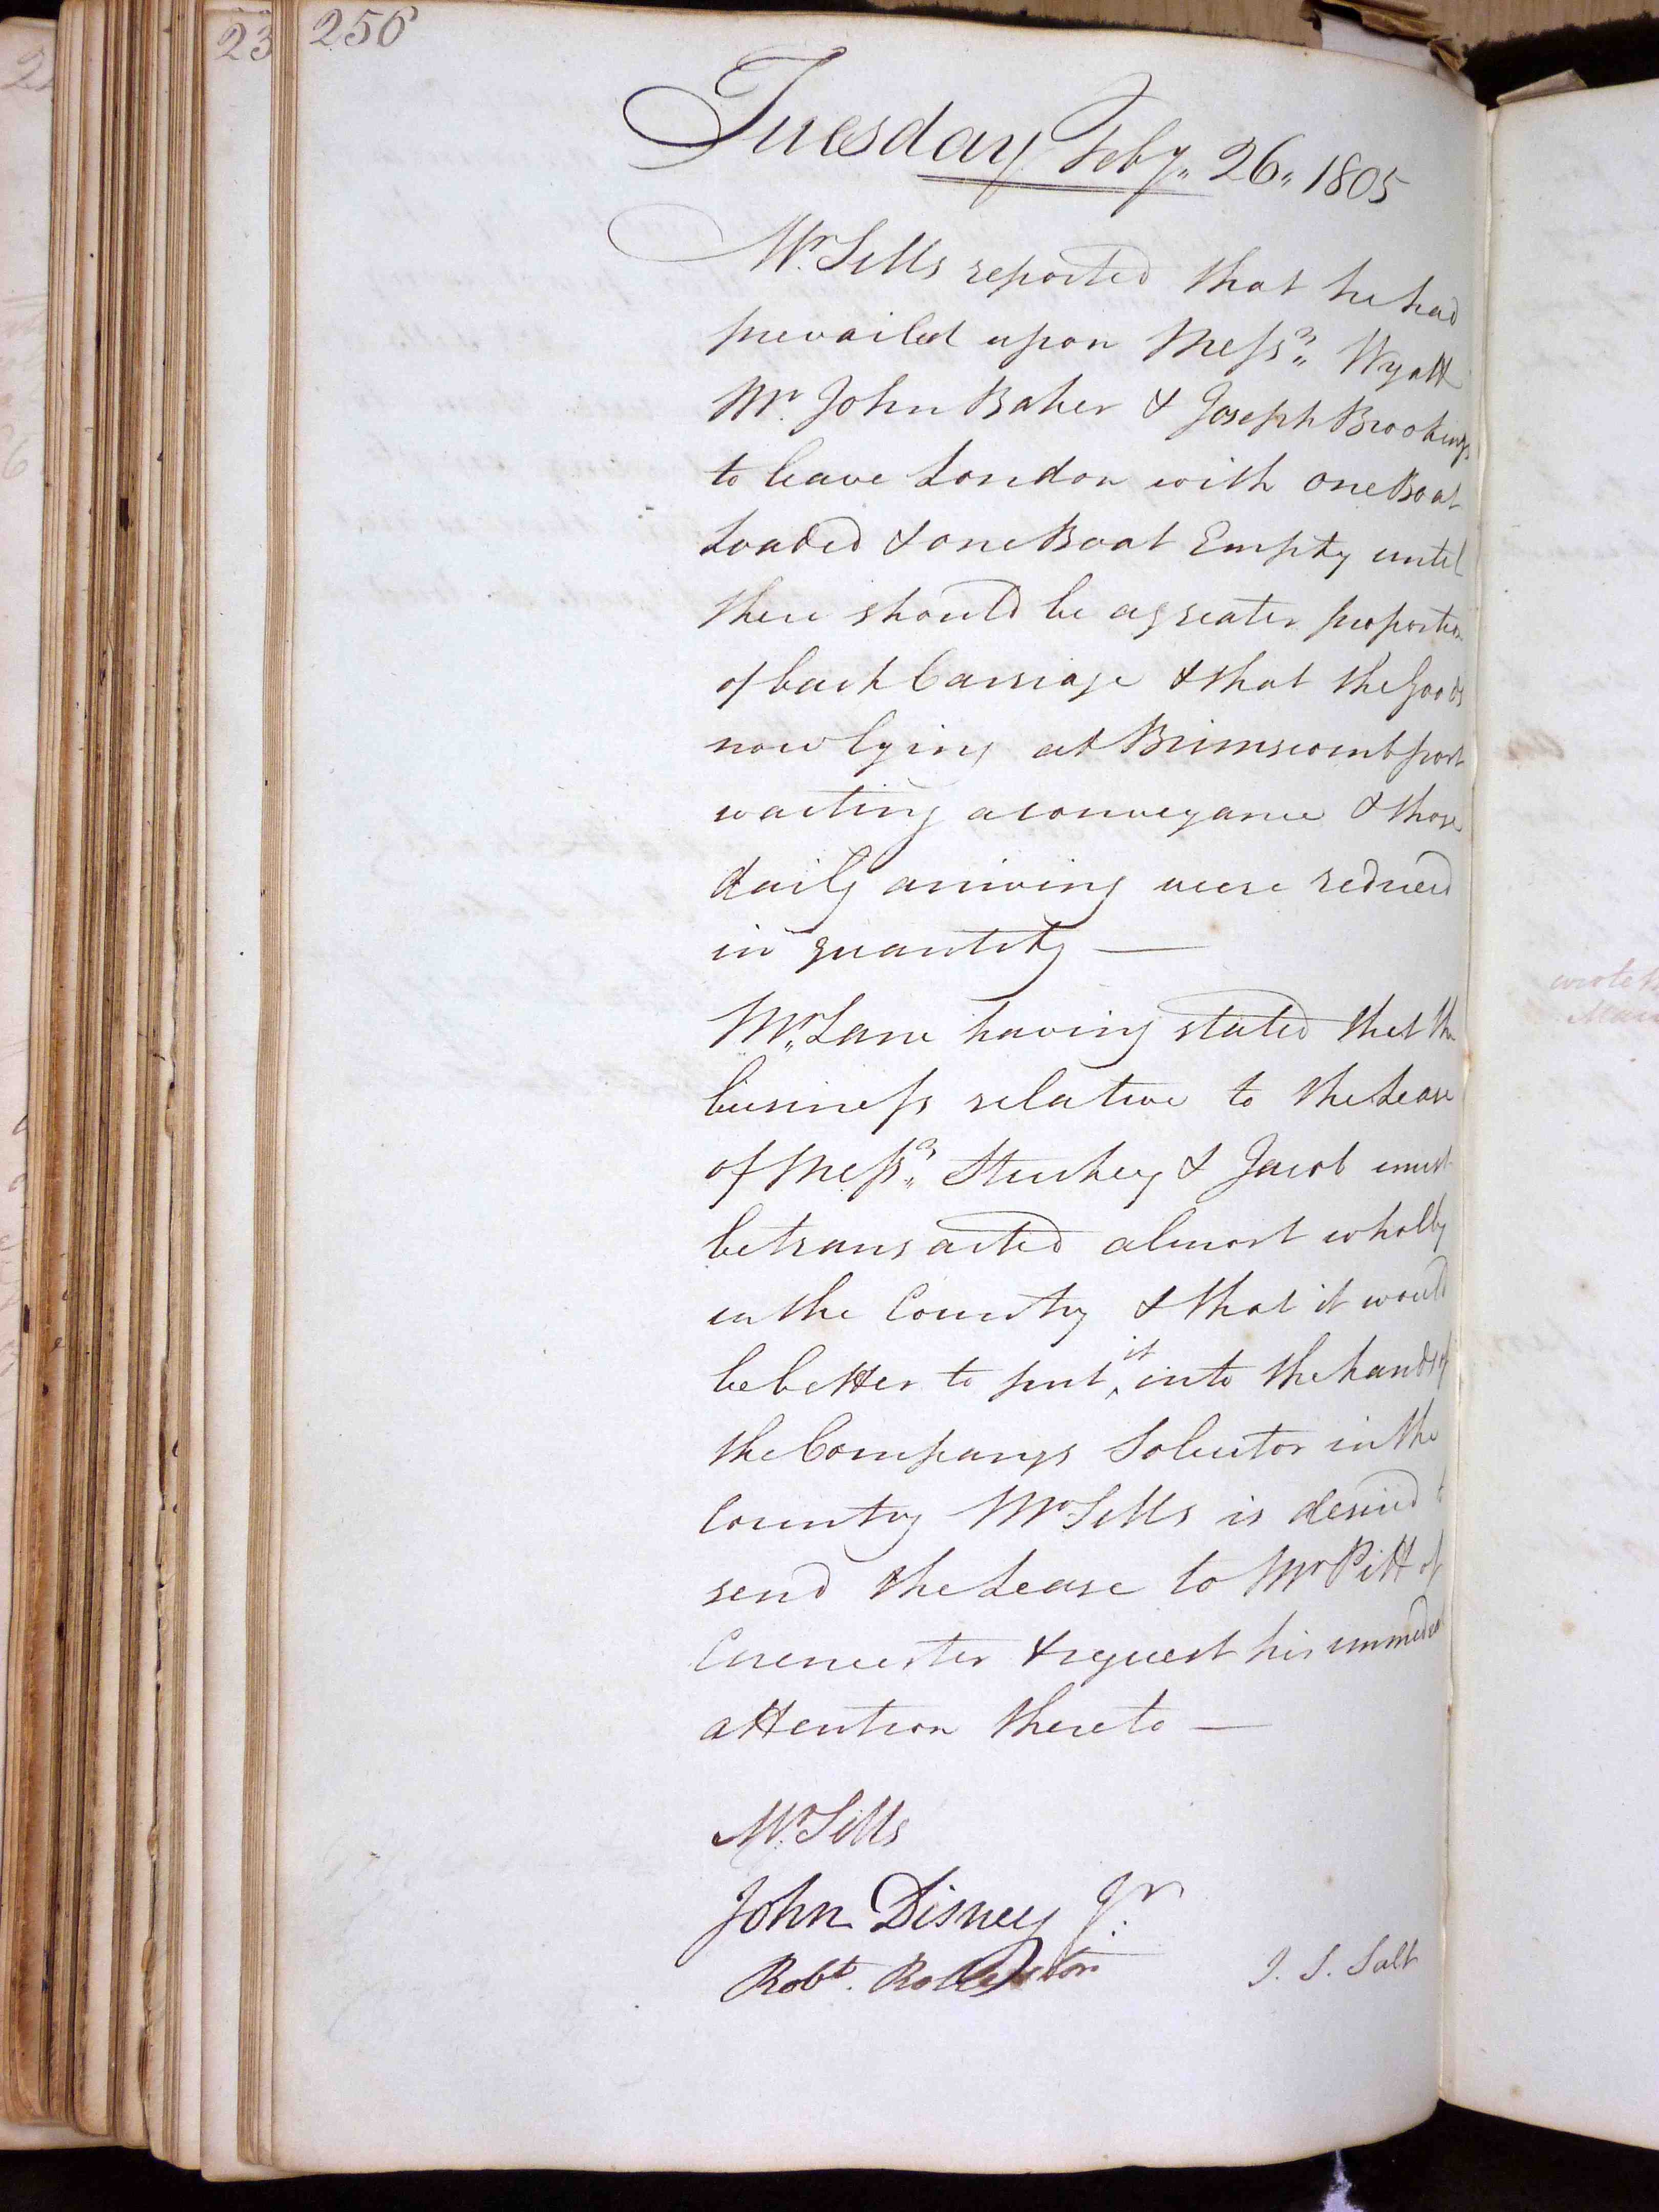 256
23
Tuesday Feby. 26. 1805
Mr. Sills reported that he had
prevailed upon Messrs. Wyatt
Mr. John Baker & Joseph Brookings
to leave London with one Boat
Loaded & one Boat Empty until
there should be a greater proportion
of back Carriage & that the Goods
now lying at Brimscomb port
waiting a conveyance & those
daily arriving were reduced
in quantity —
Mr. Lane having stated that the
business relative to the Lease
of Messrs. Stuckey & Jacob must
be transacted almost wholly
in the Country & that it would
be better to put it into the hands of
the Companys Solicitor in the
Country Mr Sills is desired to
send the Lease to Mr Pitt of
Cirencester & request his immediate
attention thereto —
Mr. Sills
John Disney Jr.
Robt. Rolleston
J. S. Salt